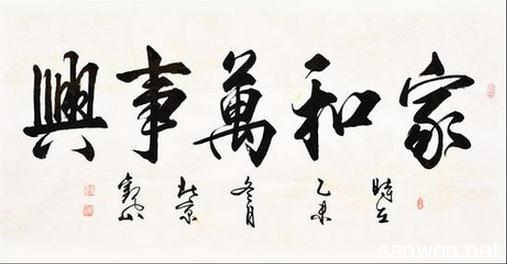 家和萬事興
時在乙未冬月
sanwen.net